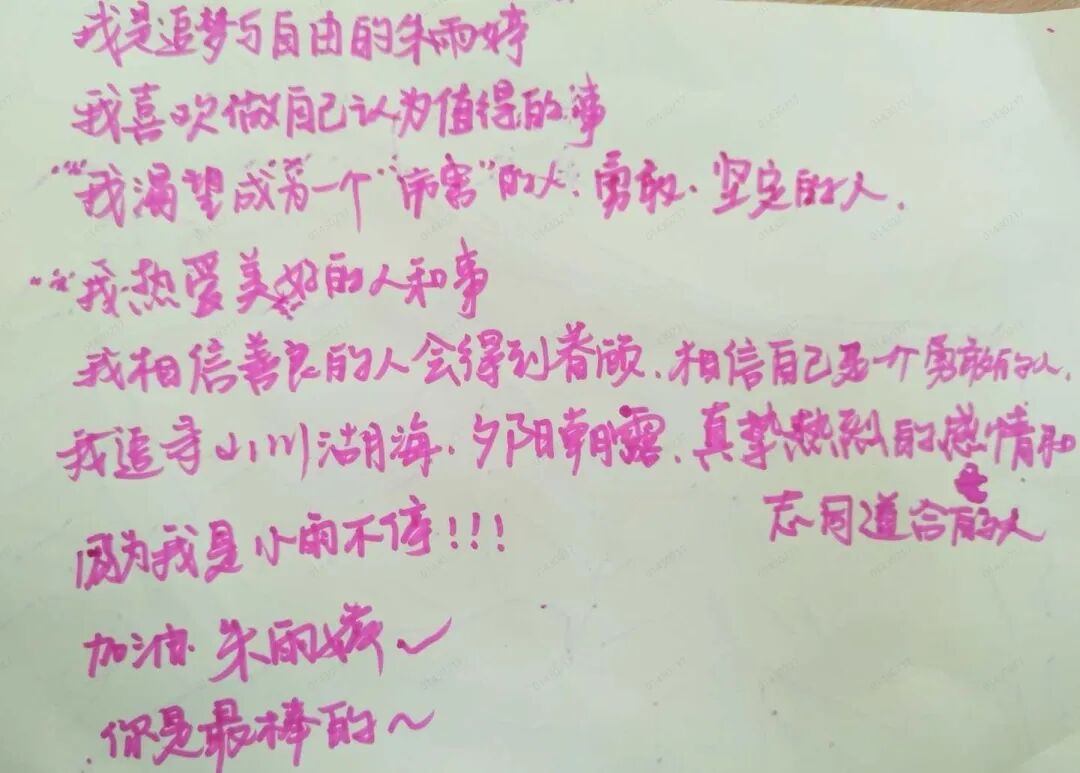 我是追梦与自由的朱雨婷
我喜欢做自己认为值得的事
我渴望成为一个“厉害”的人、勇敢、坚定的人.
我热爱美好的人和事
我相信善良的人会得到眷顾、相信自己是个勇敢的人、
我追寻山川湖海、夕阳朝露、真挚热烈的感情和
志同道合的人
因为我是小雨不停!!!
加油 朱雨婷~
你是最棒的~
01430217